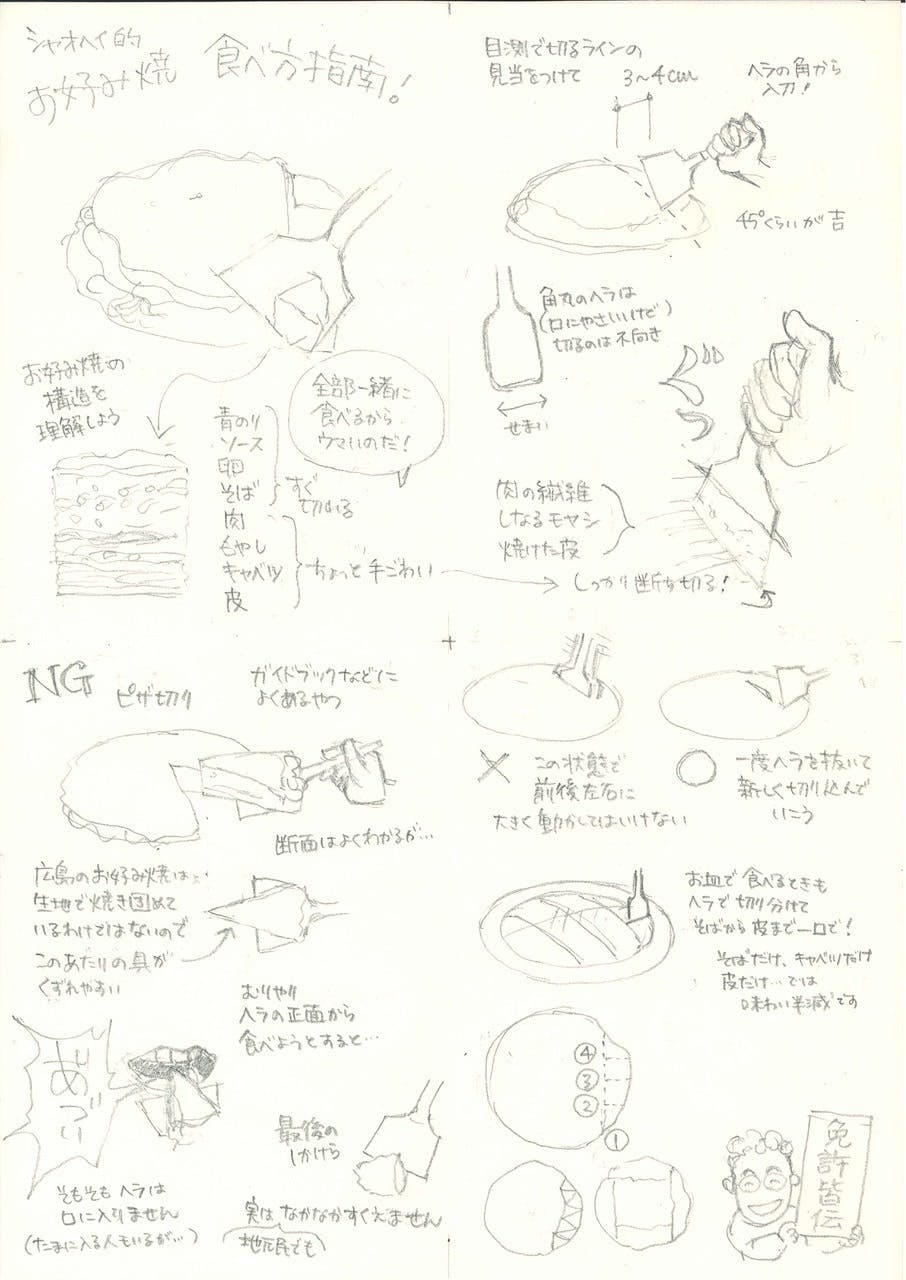 シャオヘイ的
お好み焼 食べ方指南!
お好み焼の
構造を
理解しよう
全部一緒に
食べるから
ウマいのだ!
青のり
ソース
卵
そば
すぐ
切れる
肉
もやし
キャベツ
皮
ちょっと手ごわい
目測で切るラインの
見当をつけて
3~4cm
ヘラの角から
入刀!
45°くらいが吉
角丸のヘラは
(口にやさしいけど)
切るのは不向き
せまい
肉の繊維
しなるモヤシ
焼けた皮
しっかり断ち切る!
NG
ピザ切り
ガイドブックなどに
よくあるやつ
断面はよくわかるが…
広島のお好み焼は
生地で焼き固めて
いるわけではないので
このあたりの具が
くずれやすい
むりやり
ヘラの正面から
食べようとすると…
あ゛づい
そもそもヘラは
口に入りません
(たまに入る人もいるが…)
最後の
しかけら
実はなかなかすくえません
(地元民でも)
× この状態で
前後左右に
大きく動かしてはいけない
○ 一度ヘラを抜いて
新しく切り込んで
いこう
お皿で食べるときも
ヘラで切り分けて
そばから皮まで一口で!
そばだけ、キャベツだけ
皮だけ…では
味わい半減です
④
③
②
①
免許皆伝